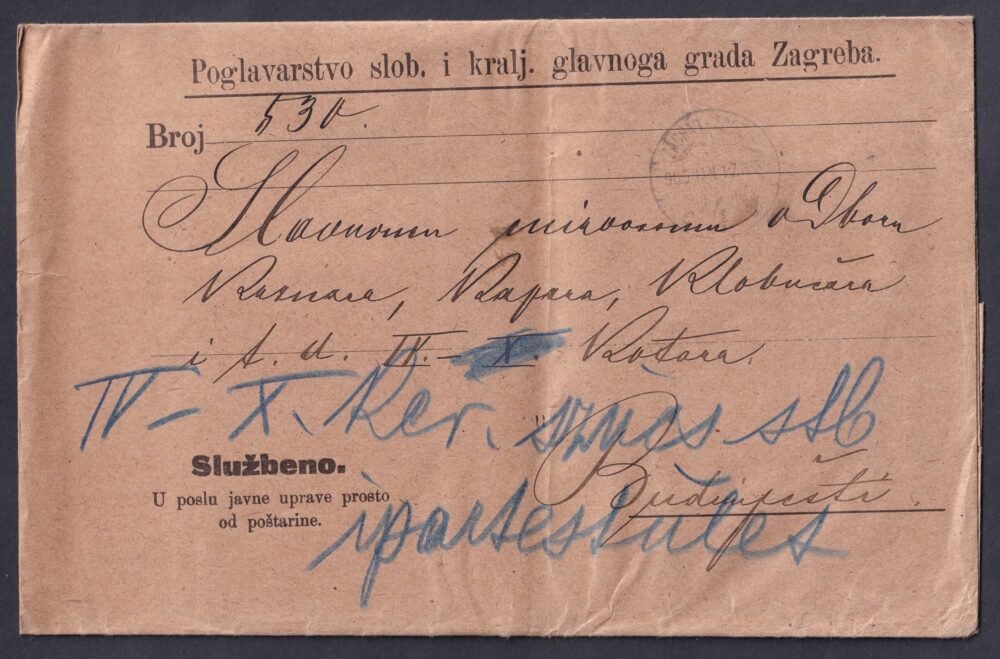 Poglavarstvo slob. i kralj. glavnoga grada Zagreba.
Broj 530.
Slavnomu odboru
Krznara, Kapara, Klobučara
i t. d. IV. – X. Kotara.
IV – X. Ker. szűcs stb
u
Službeno.
Budimpešti.
U poslu javne uprave prosto
od poštarine.
ipartestület